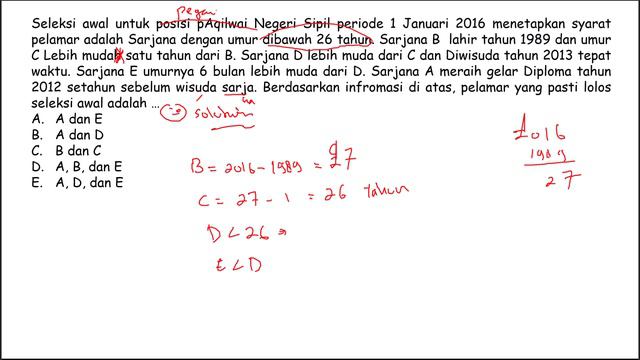 pegai
Seleksi awal untuk posisi pAqilwai Negeri Sipil periode 1 Januari 2016 menetapkan syarat
pelamar adalah Sarjana dengan umur dibawah 26 tahun. Sarjana B lahir tahun 1989 dan umur
C Lebih muda satu tahun dari B. Sarjana D lebih muda dari C dan Diwisuda tahun 2013 tepat
waktu. Sarjana E umurnya 6 bulan lebih muda dari D. Sarjana A meraih gelar Diploma tahun
2012 setahun sebelum wisuda sarja. Berdasarkan infromasi di atas, pelamar yang pasti lolos
seleksi awal adalah ...
A. A dan E
B. A dan D
C. B dan C
D. A, B, dan E
E. A, D, dan E
B = 2016 - 1989 = 27
C = 27 - 1 = 26 tahun
D < 26
E < D
2016
1989
27